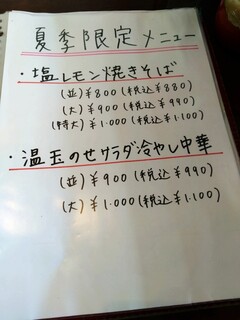 夏季限定メニュー
・塩レモン焼きそば
(並)¥800(税込¥880)
(大)¥900(税込¥990)
(特大)¥1.000(税込¥1.100)
・温玉のせサラダ冷やし中華
(並)¥900(税込¥990)
(大)¥1.000(税込¥1.100)